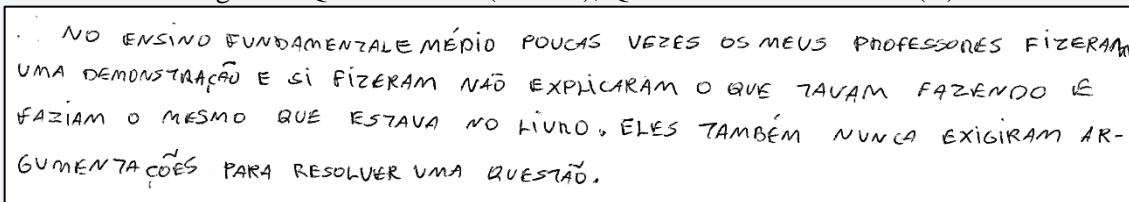 NO ENSINO FUNDAMENTAL E MÉDIO POUCAS VEZES OS MEUS PROFESSORES FIZERAM
UMA DEMONSTRAÇÃO E SI FIZERAM NÃO EXPLICARAM O QUE TAVAM FAZENDO E
FAZIAM O MESMO QUE ESTAVA NO LIVRO. ELES TAMBÉM NUNCA EXIGIRAM AR-
GUMENTAÇÕES PARA RESOLVER UMA QUESTÃO.